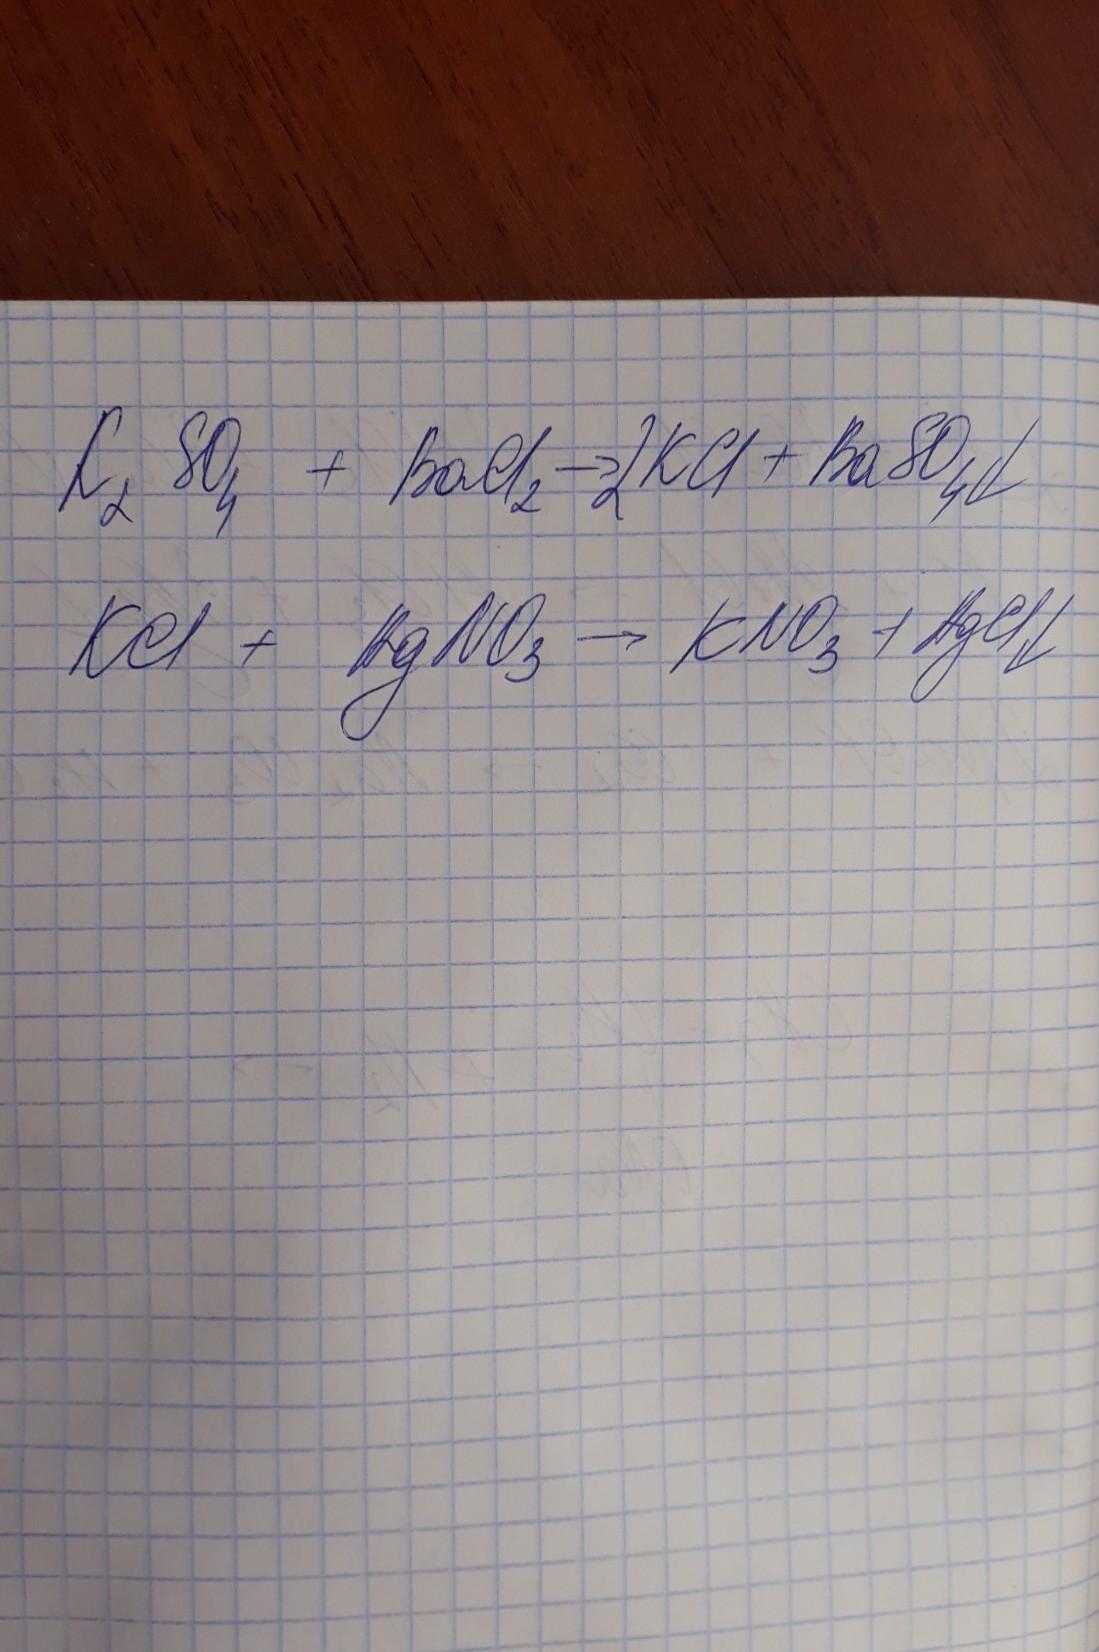 K₂SO₄ + BaCl₂ → 2KCl + BaSO₄↓
KCl + AgNO₃ → KNO₃ + AgCl↓